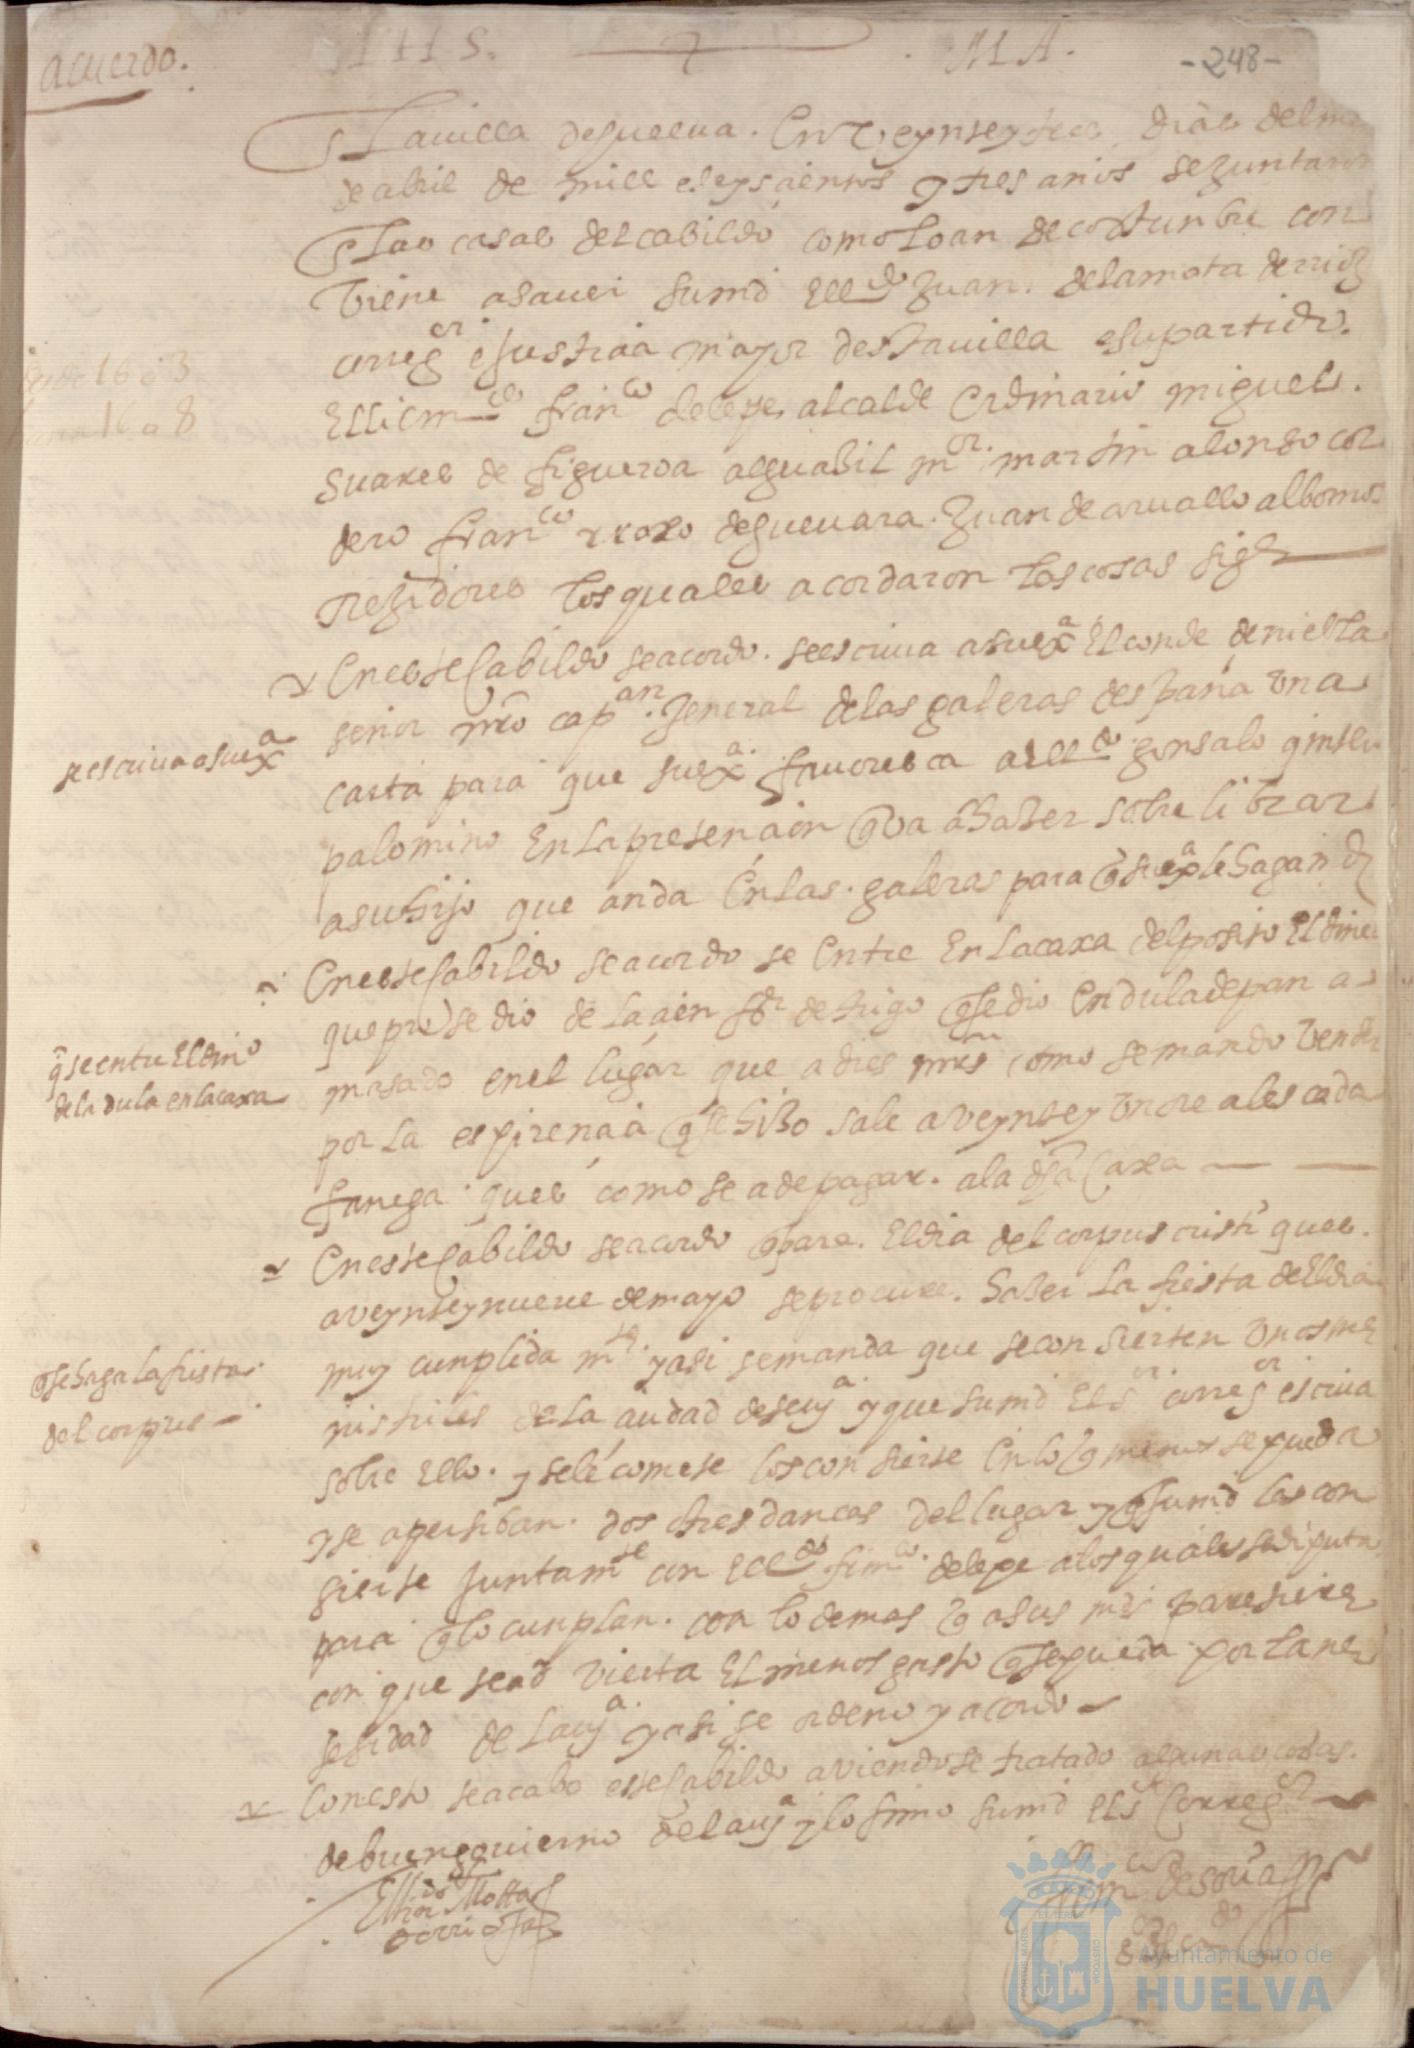 acuerdo.
IHS. MA.
-248-
En La uilla de guelua. En Veynte y tres dias del me
de abril de mill e seyscientos y tres años se juntaron
En las casas del cabildo como lo an de costunbre con
viene a sauer su md El Ldo Juan. de la mota derrioja
correg.or e Justicia mayor desta uilla e su partido.
El licendo franco de lepe alcalde Ordinario miguel.
suares de figueroa alguasil mor. martin alonso cor
dero franco rroxo de gueuara. Juan de aruallo albornos
rregidores los quales acordaron las cosas sigtes
En este Cabildo se acordo. se escriua a su exa El conde de niebla
señor nro capan. General de las galeras de españa vna
carta para que su exa. fauoresca al Ldo gonsalo quinter
palomino En la pretencion q va a haser sobre librar
a su hijo que anda En las. galeras para q su exa le hagan
se escriua a su exa
En este Cabildo se acordo se Entre En la caxa del posito El diner
que prosedio de la cien fs de trigo q se dio En dula de pan a
masado en el lugar que a dies mrs como se mando vender
por la espirencia q se hiso sale a veynte y vn reales cada
fanega. que es como se a de pagar. a la dha Caxa
q se entre El dino
de la dula en la caxa
En este Cabildo se acordo q para. El dia del corpus cristi que es.
a veynte y nueue de mayo se procure. haser la fiesta de El dia
muy cunplida mte. y asi se manda que se consierten vnos me
nistriles de la ciudad de seuya y que su md El sor. corregor escriua
sobre Ello. y se le comete los consierte En lo q menos se pueda
y se apersiban. dos o tres dancas del lugar y q su md las con
sierte Juntamte con El Ldo franco. de lepe a los quales se diputa
para q lo cunplan. con lo demas q a sus mds paresiere
con que se advierta El menos gasto q se pueda por la ne
sesidad de la uya. y asi se ordeno y acordo
q se haga la fiesta.
del corpus
Con esto se acabo este Cabildo aviendose tratado algunas cosas.
de buen gouierno de la uya y lo firmo su md El sor Corregor
El Ldo Jn de la Motta
derrioja
Ayuntamiento de
HUELVA